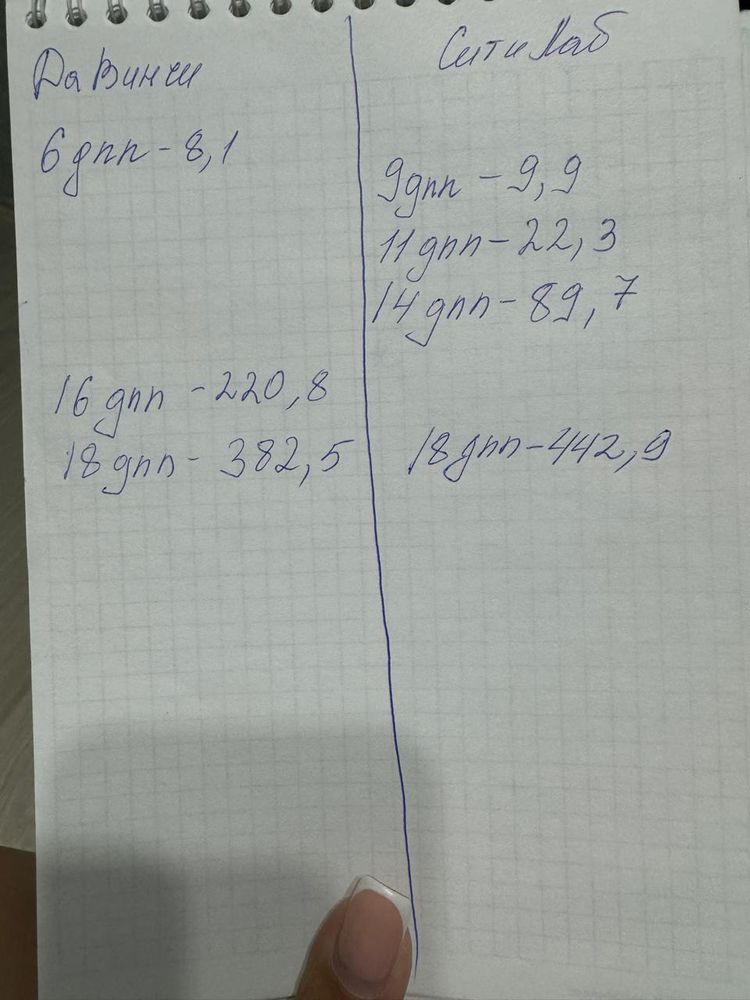 ДаВинчи
6дпп - 8,1
16 дпп - 220,8
18дпп - 382,5
СитиЛаб
9дпп - 9,9
11дпп - 22,3
14дпп - 89,7
18дпп - 442,9